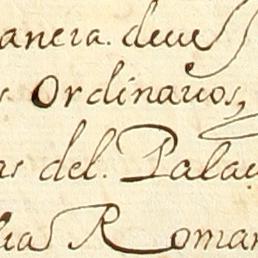 anera. deue
s Ordinarios,
as del. Palac
lia Roman